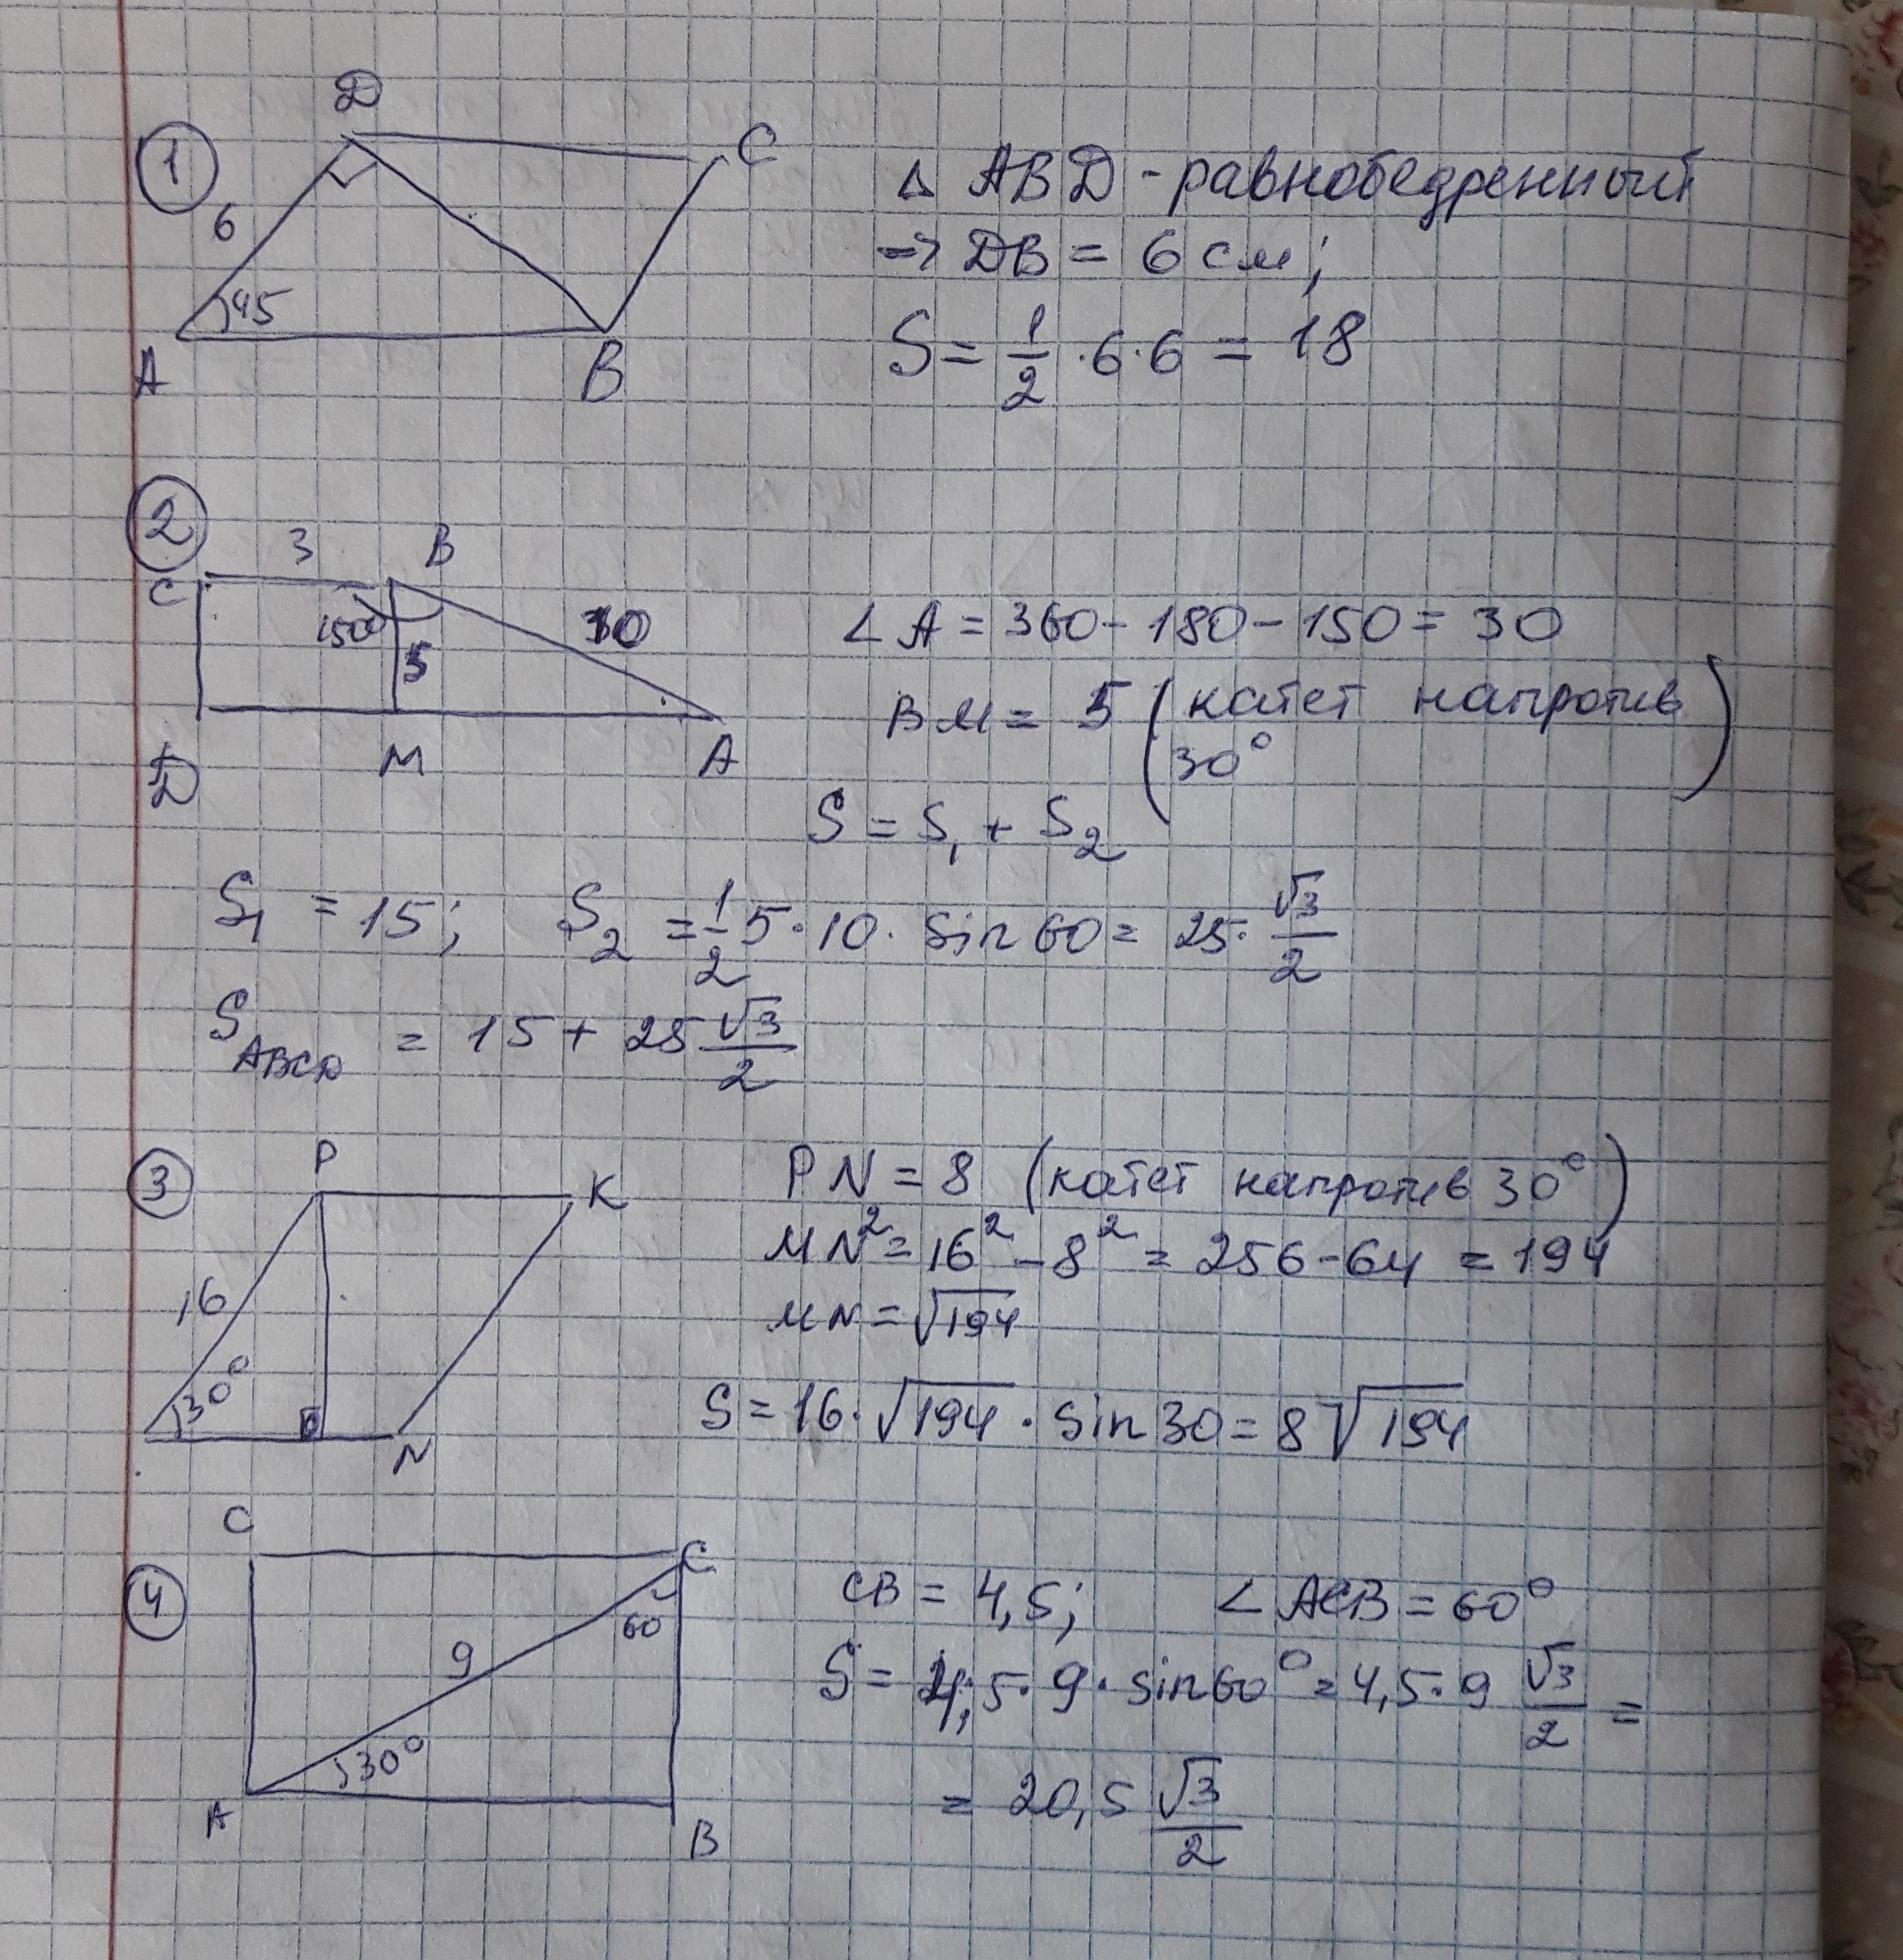 1
D
C
6
45
A
B
Δ ABD - равнобедренный
→ DB = 6 см;
S = 1/2 · 6 · 6 = 18
2
3
B
C
150°
10
5
D
M
A
∠ A = 360 - 180 - 150 = 30
BM = 5 (катет напротив
30°)
S = S₁ + S₂
S₁ = 15; S₂ = 1/2 5 · 10 · sin 60 = 25 · √3/2
S ABCD = 15 + 25 √3/2
3
P
K
16
30°
N
PN = 8 (катет напротив 30°)
MN² = 16² - 8² = 256 - 64 = 194
MN = √194
S = 16 · √194 · sin 30 = 8 √194
4
C
C
60
9
30°
A
B
CB = 4,5; ∠ ACB = 60°
S = 4,5 · 9 · sin 60° = 4,5 · 9 √3/2 =
= 20,5 √3/2